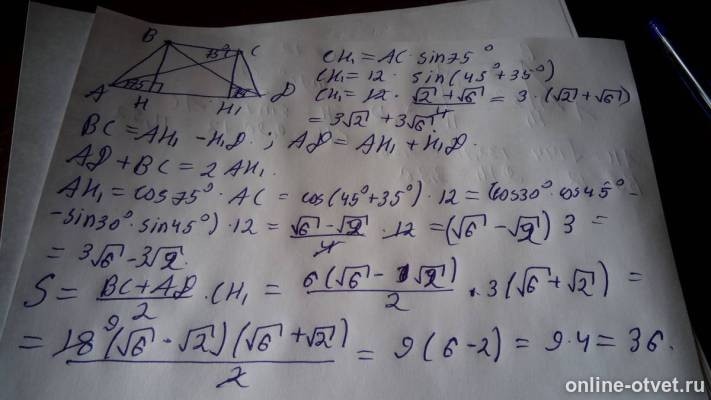 B
75° C
CH₁ = AC · sin75°
CH₁ = 12 · sin(45°+35°)
CH₁ = 12 · (√2+√6)/4 = 3 · (√2+√6)
= 3√2 + 3√6
A 75 D
H H₁
BC = AH₁ - H₁D ; AD = AH₁ + H₁D.
AD + BC = 2AH₁.
AH₁ = cos75° · AC = cos(45°+35°) · 12 = (cos30° · cos45° -
- sin30° · sin45°) · 12 = (√6-√2)/4 · 12 = (√6-√2) 3 =
= 3√6 - 3√2.
S = (BC+AD)/2 · CH₁ = 6(√6 - √2)/2 · 3(√6+√2) =
= 18 9 (√6-√2)(√6+√2)/2 = 9(6-2) = 9·4 = 36.
online-otvet.ru